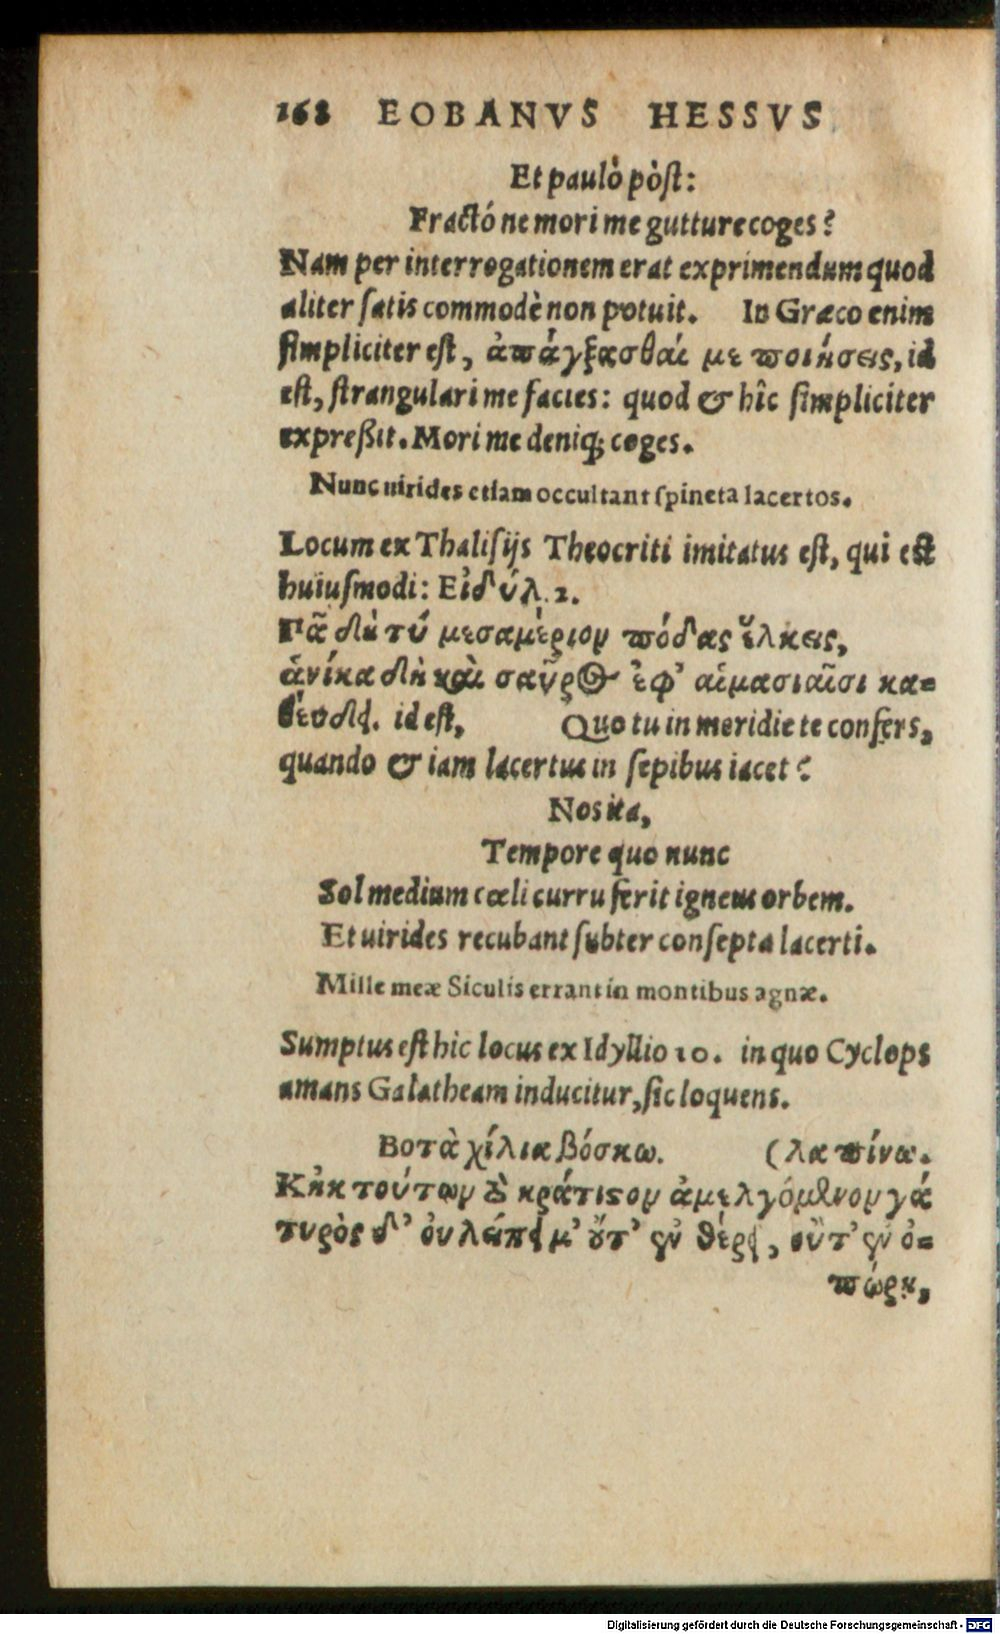 168 EOBANVS HESSVS
Et paulò pòſt:
Fractó ne mori me gutture coges?
Nam per interrogationem erat exprimendum quod
aliter ſatis commodè non potuit. In Græco enim
ſimpliciter eſt, ἀπάγξασθαί με ποιήσεις, id
eſt, ſtrangulari me facies: quod & hîc ſimpliciter
expreßit. Mori me deniq; coges.
Nunc uirides etiam occultant ſpineta lacertos.
Locum ex Thaliſijs Theocriti imitatus eſt, qui eſt
huiuſmodi: Εἰδύλ. 2.
Γᾶ δὴ τὺ μεσαμέριον πόδας ἕλκεις,
ἁνίκα δὴ καὶ σαῦρος ἐφ’ αἱμασιαῖσι κα=
θεύδει. id eſt, Quo tu in meridie te confers,
quando & iam lacertus in ſepibus iacet?
Nos ita,
Tempore quo nunc
Sol medium cœli curru ferit igneus orbem.
Et uirides recubant ſubter conſepta lacerti.
Mille meæ Siculis errant in montibus agnæ.
Sumptus eſt hic locus ex Idyllio 10. in quo Cyclops
amans Galatheam inducitur, ſic loquens.
Βοτὰ χίλια βόσκω. (λα πίνω.
Κἠκ τούτων τὸ κράτιστον ἀμελγόμενον γά
τυρὸς δ’ οὐ λείπει μ’ οὔτ’ ἐν θέρει, οὔτ’ ἐν ὀ=
πώρῃ,
Digitalisierung gefördert durch die Deutsche Forschungsgemeinschaft - DFG